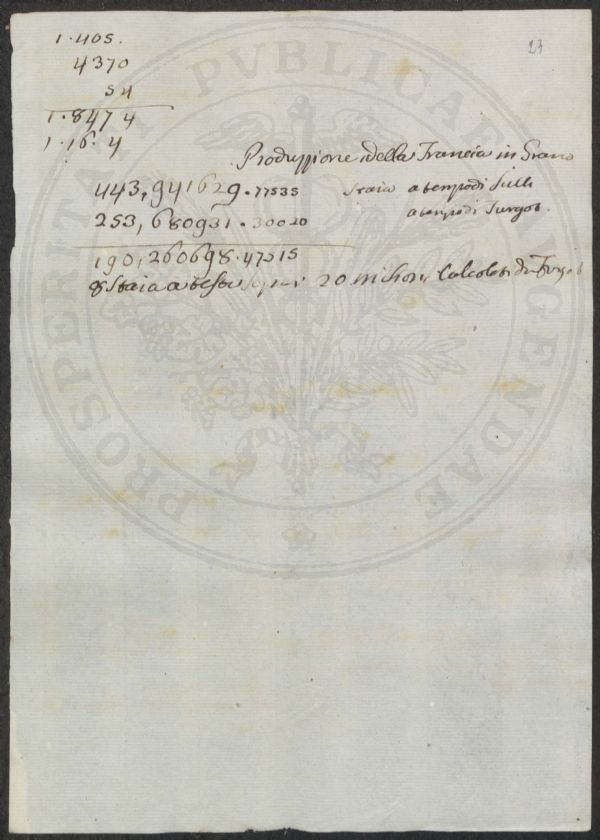 1.405.
23
4370
54
1.847 4
1.16.4
Produzzione della Francia in Grano
443,941629.77535 Staia a tempo di Sulli
253,680931.30020 a tempo di Turgot.
190,260698.47515
8 Staia a testa 20 milioni Calcolati da Turgot
PROSPERITATI PVBLICAE AVGENDAE